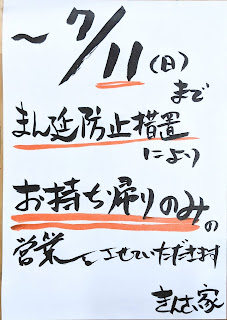 ～7/11(日)まで
まん延防止措置
により
お持ち帰りのみの
営業とさせていただきます
きんさい家